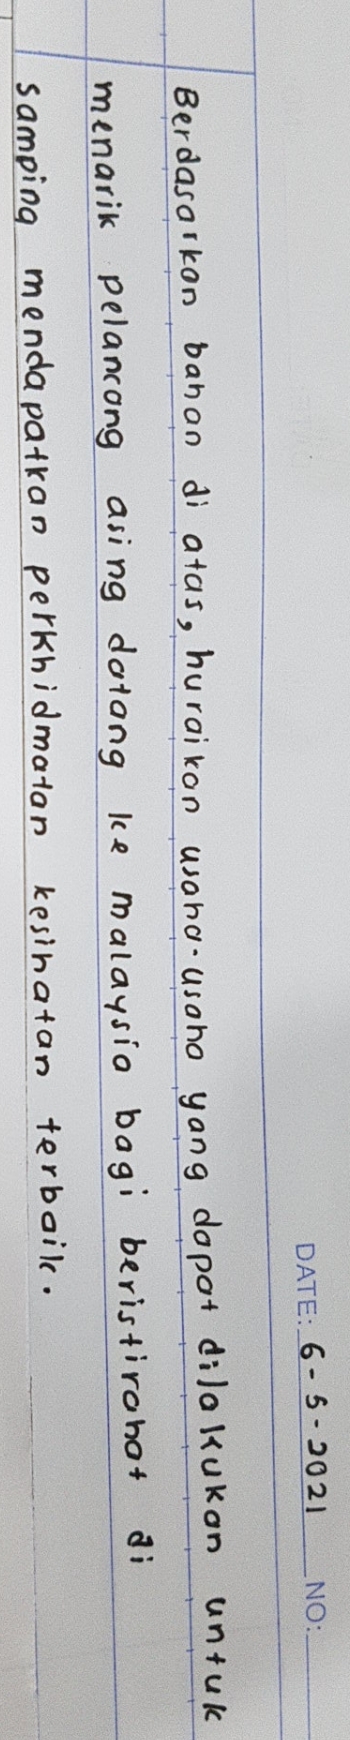 DATE: 6-5-2021 NO:
Berdasarkan bahan di atas, huraikan usaha-usaha yang dapat dilakukan untuk
menarik pelancong asing datang ke malaysia bagi beristirahat di
samping mendapatkan perkhidmatan kesihatan terbaik.